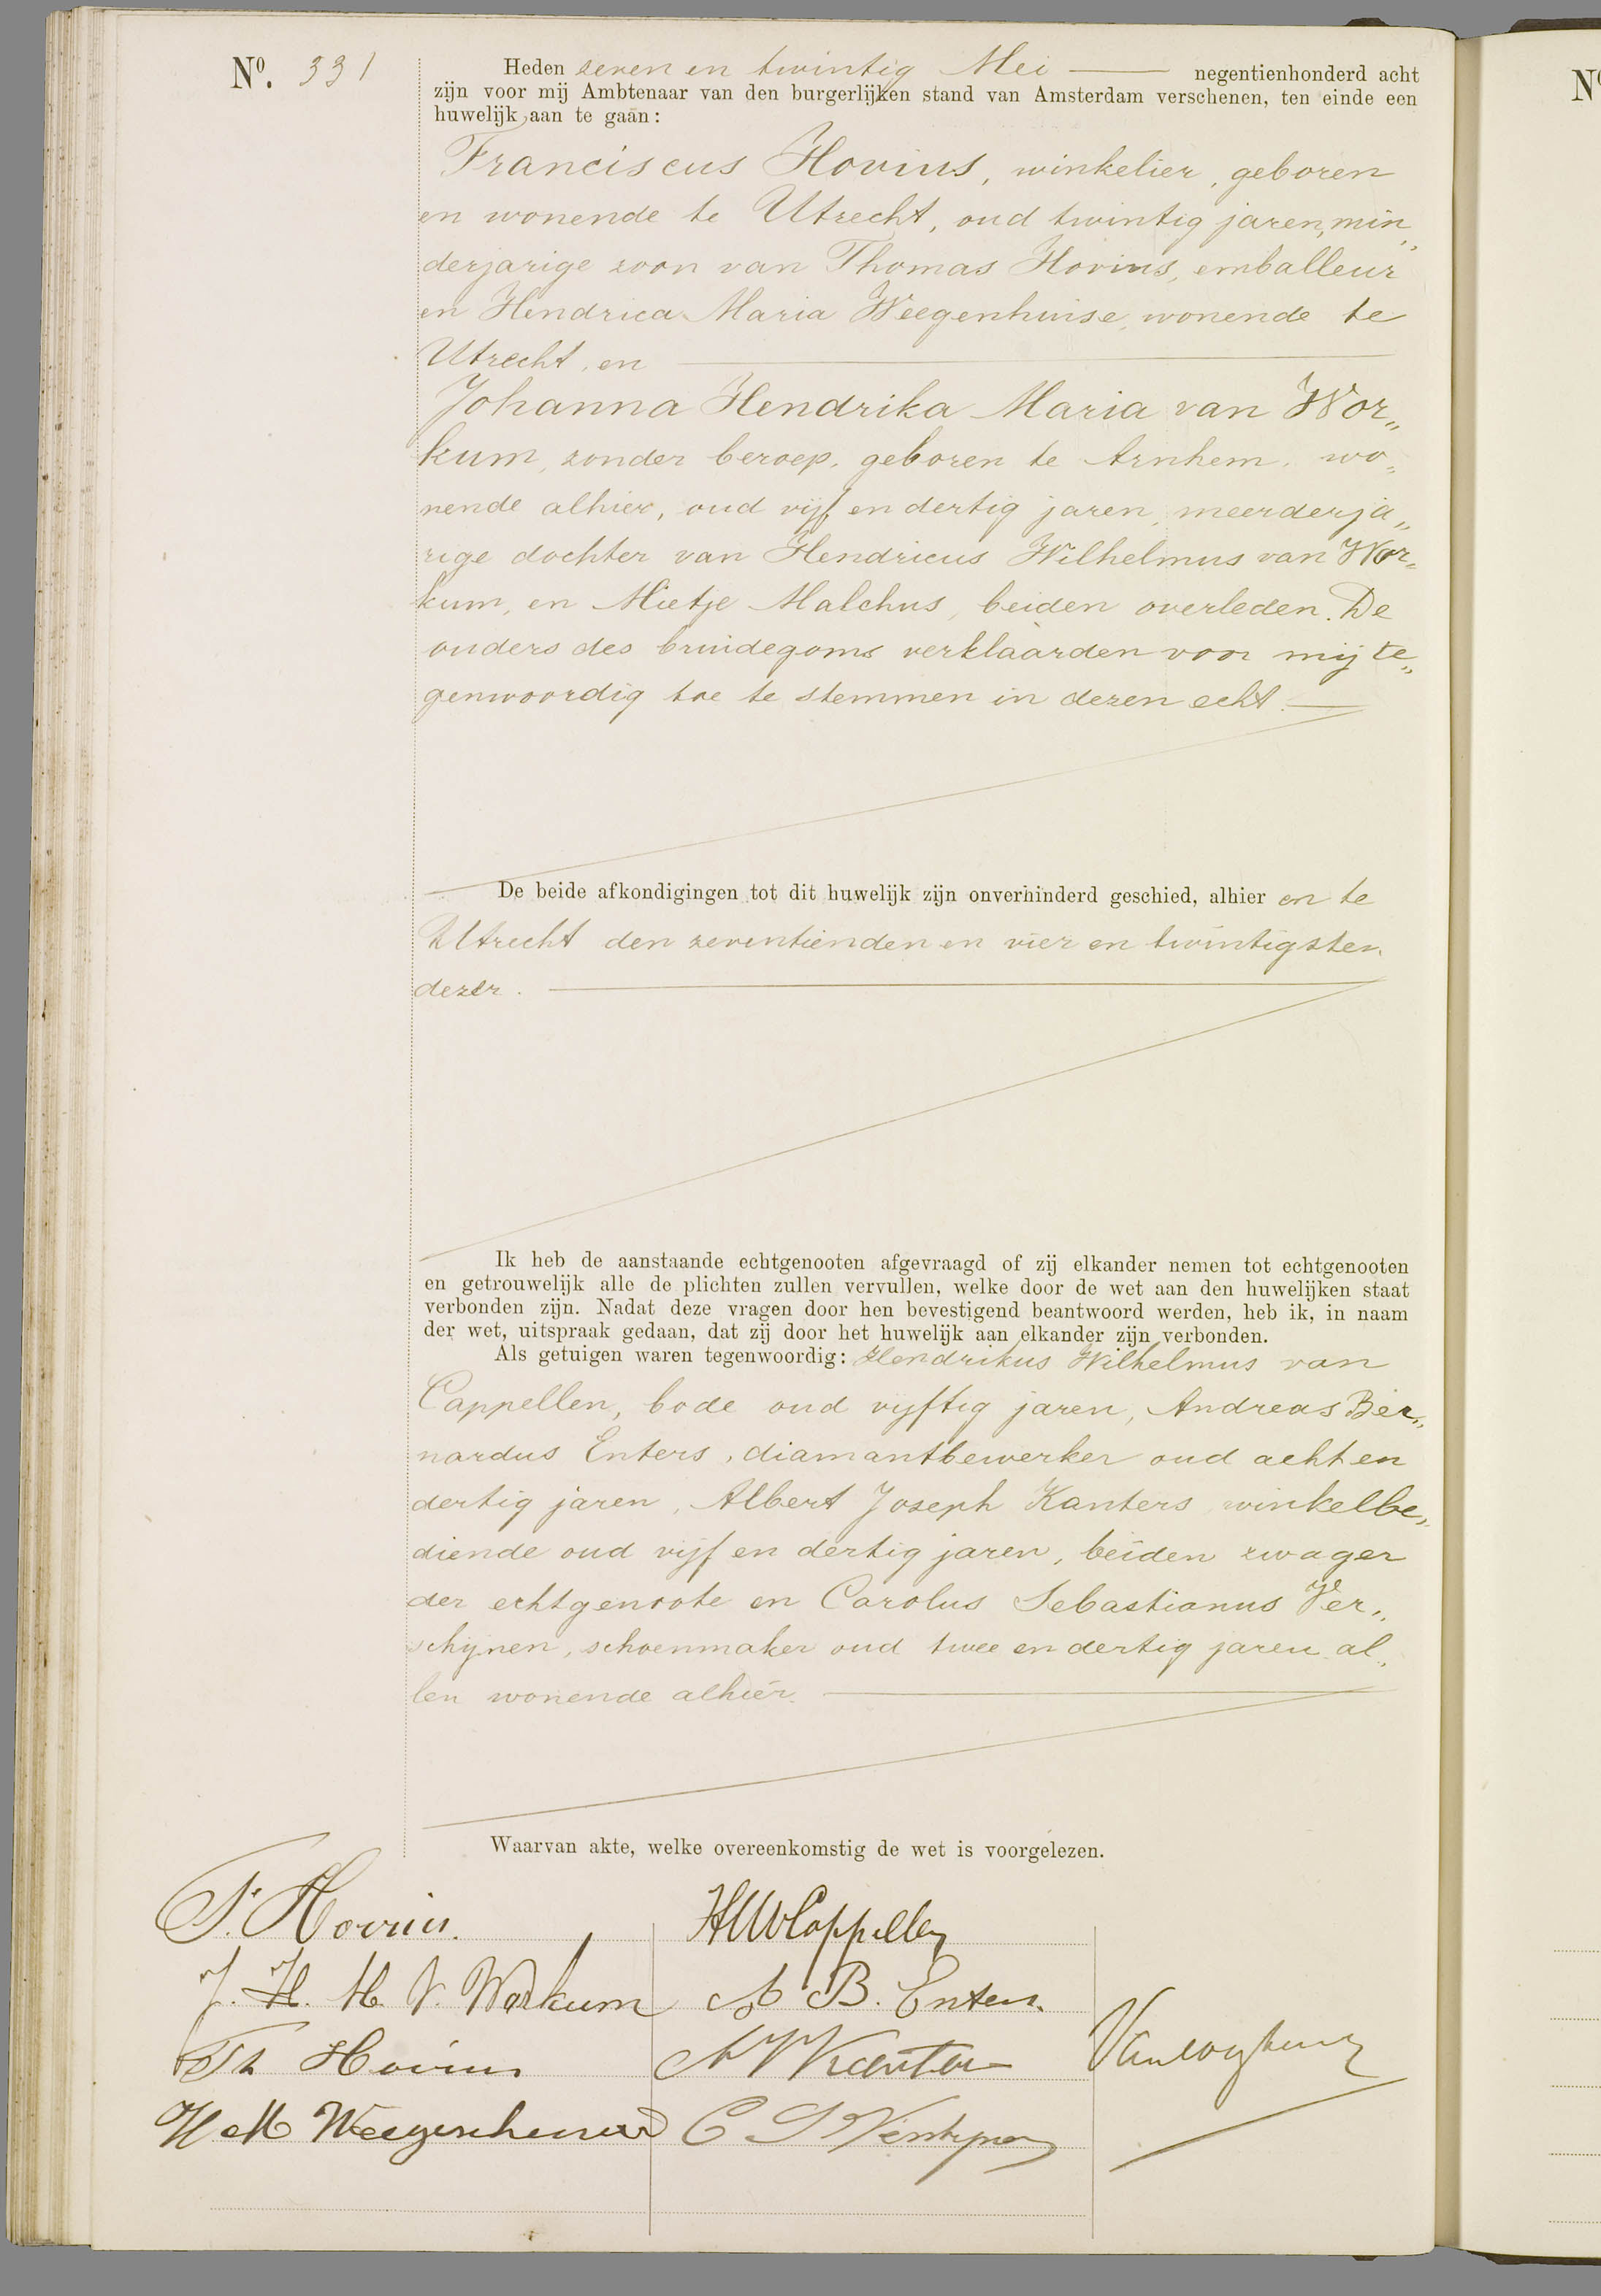 Nº. 331
Heden zeven en twintig Mei — negentienhonderd acht
zijn voor mij Ambtenaar van den burgerlijken stand van Amsterdam verschenen, ten einde een
huwelijk aan te gaan:
Franciscus Hovius, winkelier, geboren
en wonende te Utrecht, oud twintig jaren, min„
derjarige zoon van Thomas Hovius, emballeur
en Hendrica Maria Weegenhuise, wonende te
Utrecht, en
Johanna Hendrika Maria van Wor„
kum, zonder beroep, geboren te Arnhem, wo„
nende alhier, oud vijf en dertig jaren, meerderja„
rige dochter van Hendricus Wilhelmus van Wor„
kum, en Mietje Malchus, beiden overleden. De
ouders des bruidegoms verklaarden voor mij te„
genwoordig toe te stemmen in dezen echt.
De beide afkondigingen tot dit huwelijk zijn onverhinderd geschied, alhier en te
Utrecht den zeventienden en vier en twintigsten
dezer.
Ik heb de aanstaande echtgenooten afgevraagd of zij elkander nemen tot echtgenooten
en getrouwelijk alle de plichten zullen vervullen, welke door de wet aan den huwelijken staat
verbonden zijn. Nadat deze vragen door hen bevestigend beantwoord werden, heb ik, in naam
der wet, uitspraak gedaan, dat zij door het huwelijk aan elkander zijn verbonden.
Als getuigen waren tegenwoordig: Hendrikus Wilhelmus van
Cappellen, bode oud vijftig jaren, Andreas Ber„
nardus Enters, diamantbewerker oud acht en
dertig jaren, Albert Joseph Kanters winkelbe„
diende oud vijf en dertig jaren, beiden zwager
der echtgenoote en Carolus Sebastianus Ver„
schijnen, schoenmaker oud twee en dertig jaren al„
len wonende alhier.
Waarvan akte, welke overeenkomstig de wet is voorgelezen.
F. Hovius.
HWvCappellen
J. H. M. V. Workum
A B. Enters.
Th Hovius
A J Kanters
H M Weegenhuise
C S
Nº